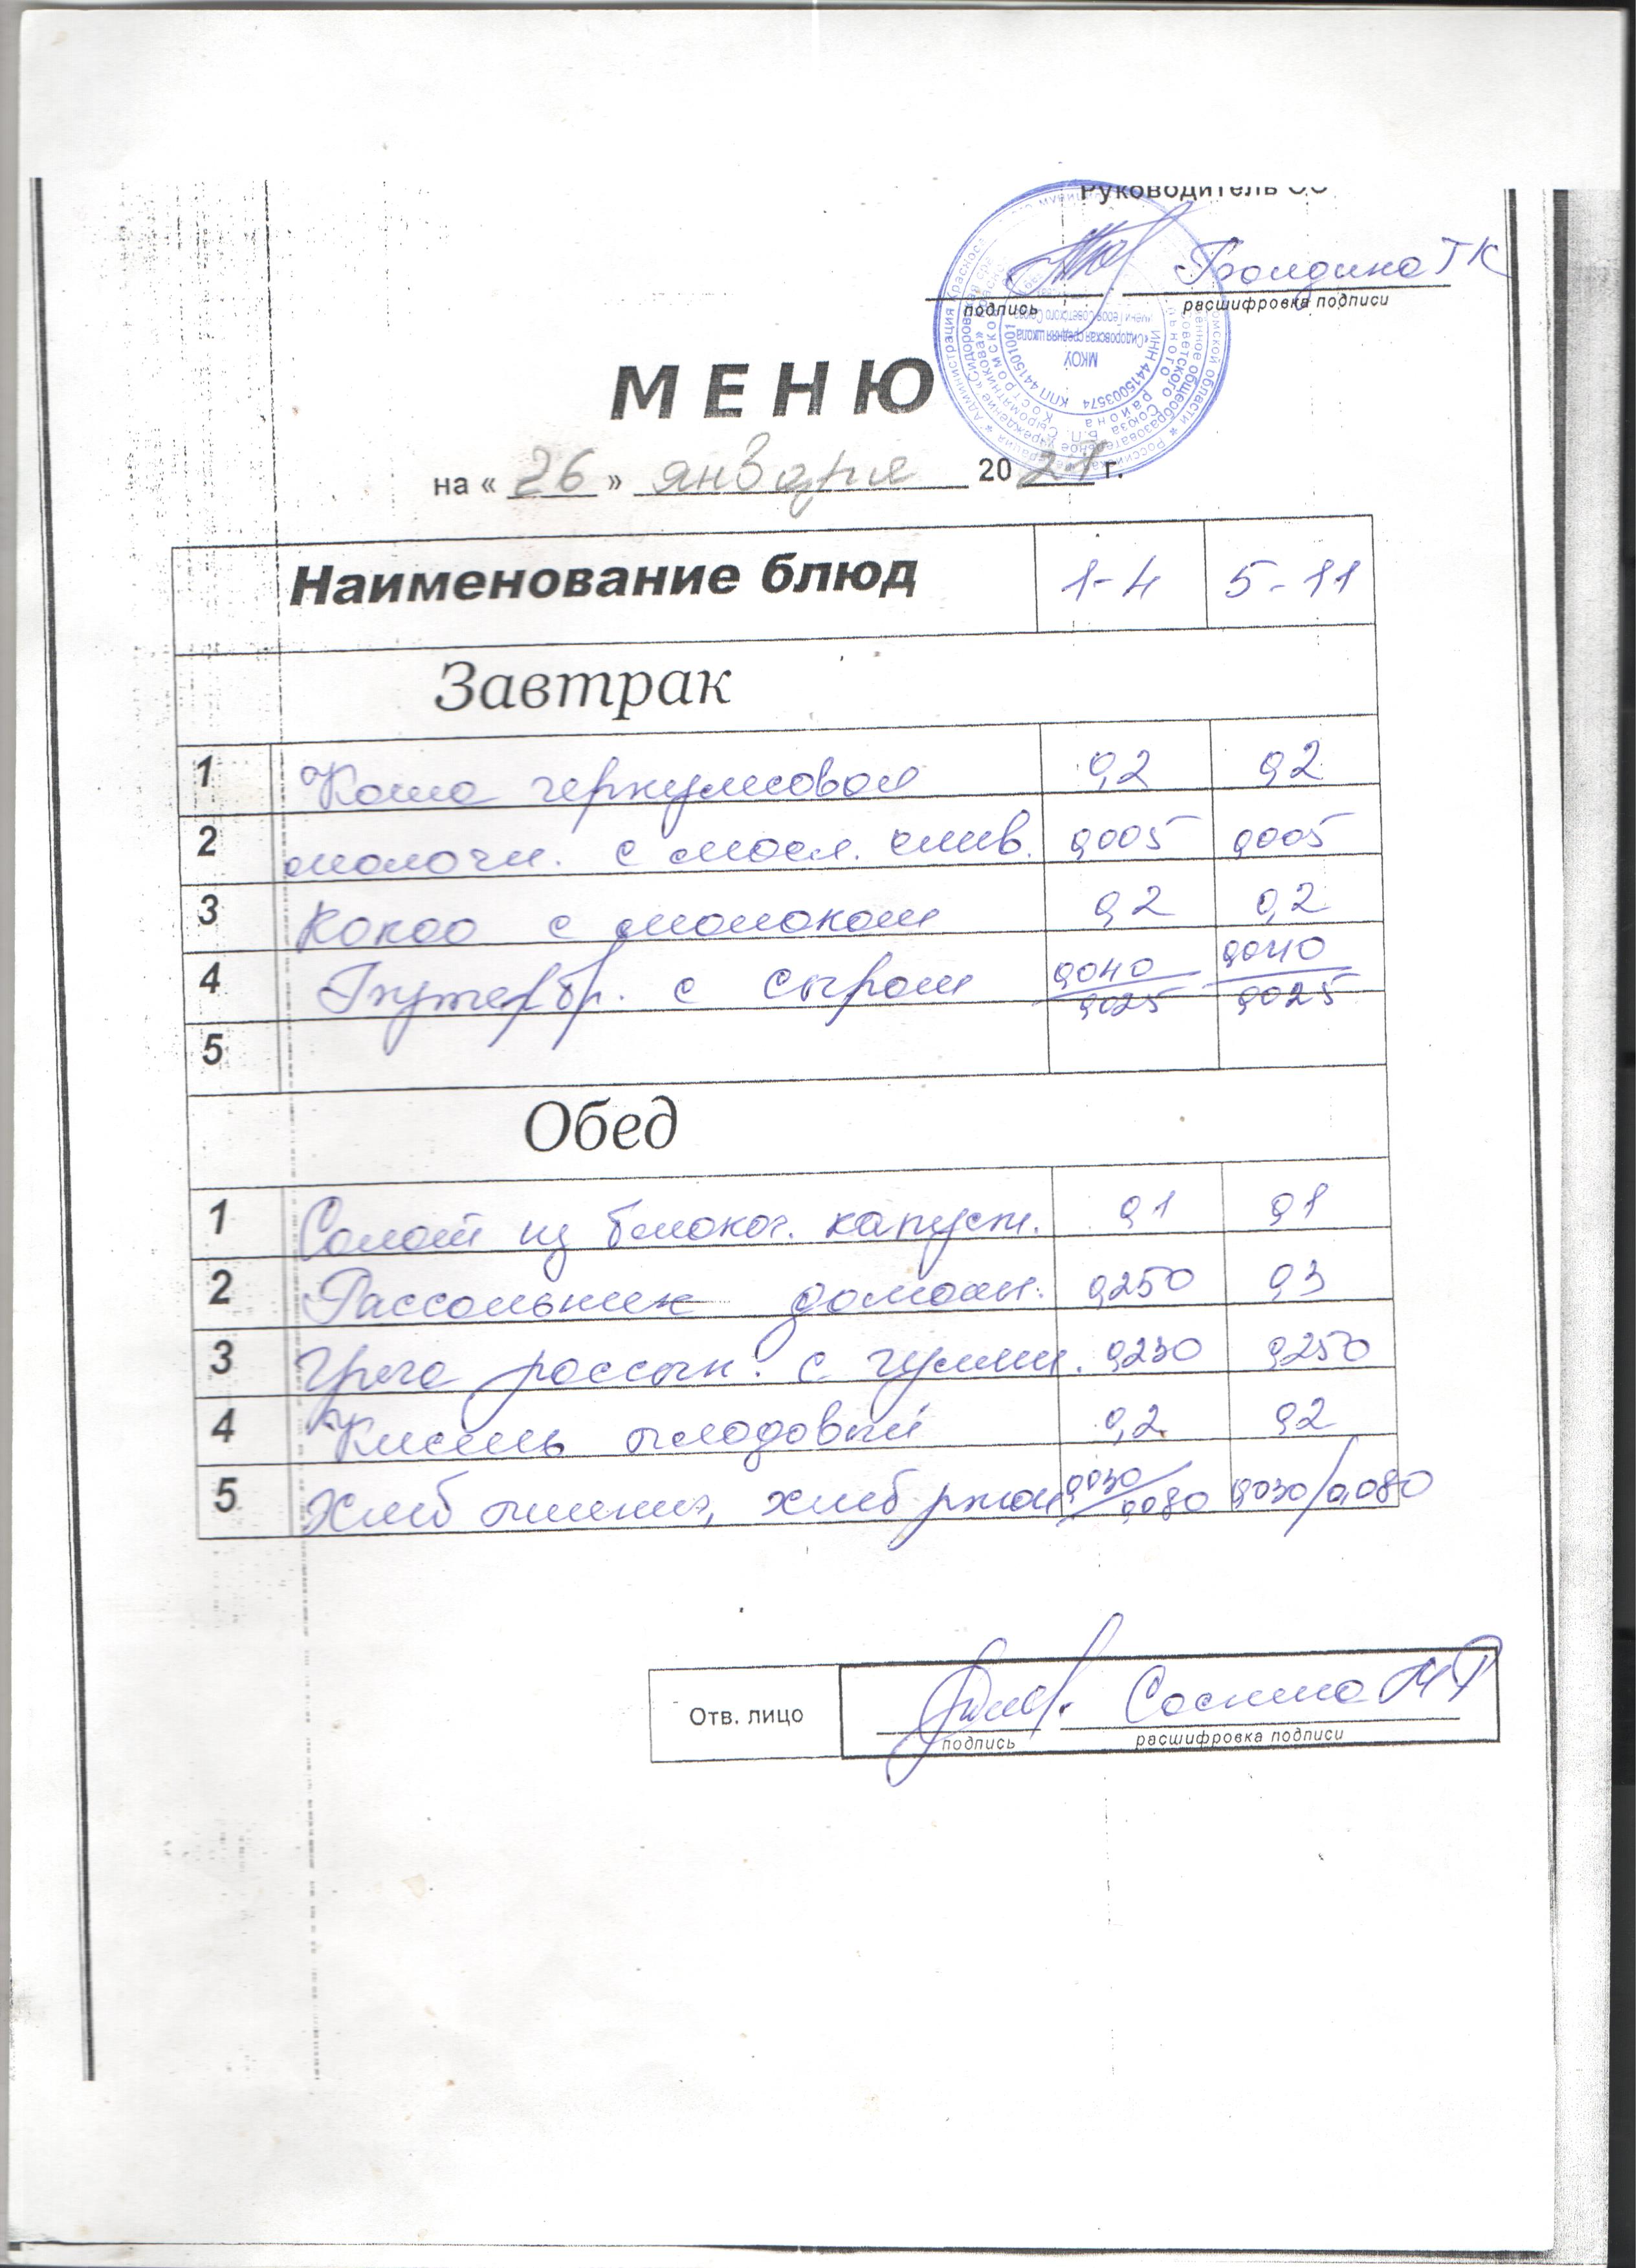 Руководитель ОО
Груздина ТК
подпись расшифровка подписи
МКОУ
«Сидоровская средняя школа
ИНН 4415003574 КПП 441501001
МЕНЮ
на « 26 » января 20 21 г.
Наименование блюд 1-4 5-11
Завтрак
1 Каша геркулесовая 0,2 0,2
2 молочн. с масл. слив. 0,005 0,005
3 Какао с молоком 0,2 0,2
4 Бутербр. с сыром 0,040/0,025 0,040/0,025
5
Обед
1 Салат из белокоч. капуст. 0,1 0,1
2 Рассольник домашн. 0,250 0,3
3 Греча рассып. с гуляш. 0,230 0,250
4 Кисель плодовый 0,2 0,2
5 Хлеб пшенич, хлеб ржан 0,030/0,080 0,030/0,080
Отв. лицо Соснина
подпись расшифровка подписи